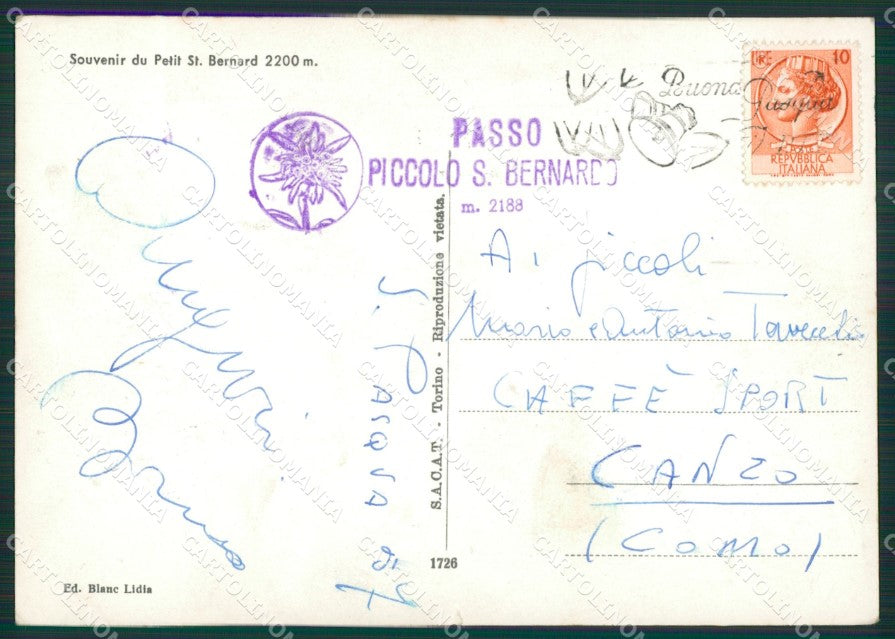 Souvenir du Petit St. Bernard 2200 m.
PASSO
PICCOLO S. BERNARDO
m. 2188
Buona
Pasqua
LIRE 10
REPVBBLICA
ITALIANA
Auguri
S. PASQUA
S.A.C.A.T. - Torino - Riproduzione vietata.
1726
Ai piccoli
Mario e Antonio
CAFFÈ SPORT
CANZO
(COMO)
Ed. Blanc Lidia
CARTOLINOMANIA